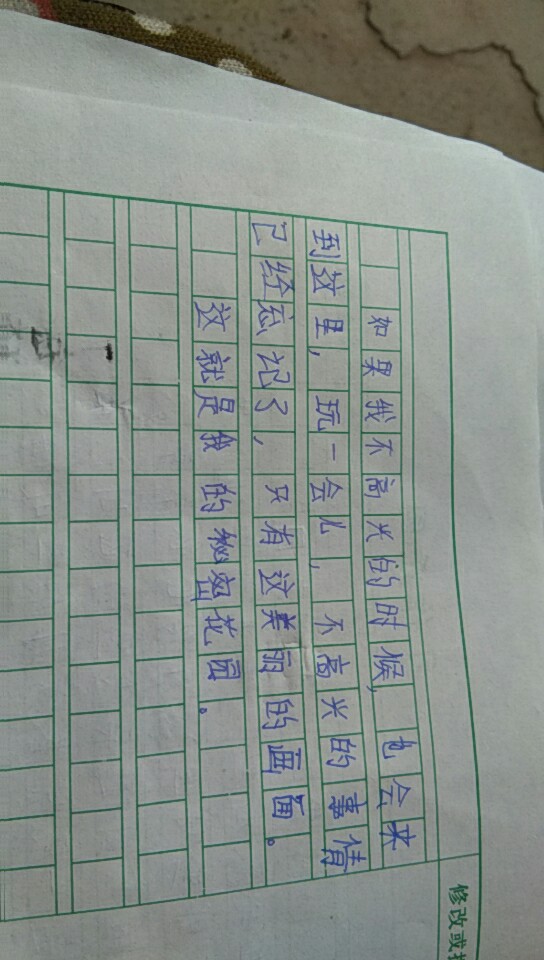 如果我不高兴的时候,也会来
到这里,玩一会儿,不高兴的事情
已经忘记了,只有这美丽的画面。
这就是我的秘密花园。
修改或